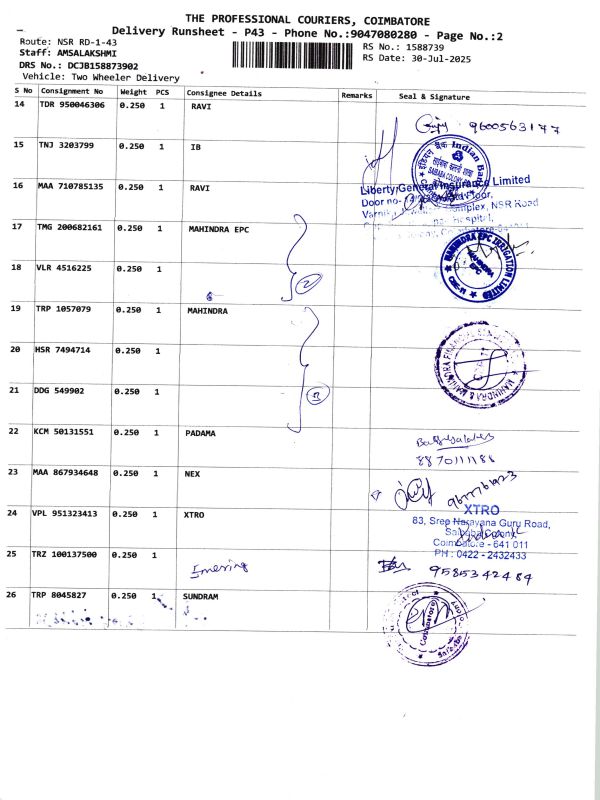 THE PROFESSIONAL COURIERS, COIMBATORE
Delivery Runsheet - P43 - Phone No.:9047080280 - Page No.:2
Route: NSR RD-1-43
RS No.: 1588739
Staff: AMSALAKSHMI
RS Date: 30-Jul-2025
DRS No.: DCJB158873902
Vehicle: Two Wheeler Delivery
S No Consignment No Weight PCS Consignee Details Remarks Seal & Signature
14 TDR 950046306 0.250 1 RAVI
9600563177
15 TNJ 3203799 0.250 1 IB
Indian Bank
16 MAA 710785135 0.250 1 RAVI
Liberty General Insurance Limited
Door no- Floor,
Complex, NSR Road
Hospital,
17 TMG 200682161 0.250 1 MAHINDRA EPC
2
MAHINDRA EPC IRRIGATION LIMITED
MAHINDRA
EPC
CBE-11
18 VLR 4516225 0.250 1
19 TRP 1057079 0.250 1 MAHINDRA
20 HSR 7494714 0.250 1
MAHINDRA & MAHINDRA FINANCIAL
21 DDG 549902 0.250 1
3
22 KCM 50131551 0.250 1 PADAMA
8870111188
23 MAA 867934648 0.250 1 NEX
24 VPL 951323413 0.250 1 XTRO
XTRO
83, Sree Narayana Guru Road,
Saibaba Colony,
Coimbatore - 641 011
PH : 0422 - 2432433
25 TRZ 100137500 0.250 1
9585342484
26 TRP 8045827 0.250 1 SUNDRAM
Coimbatore